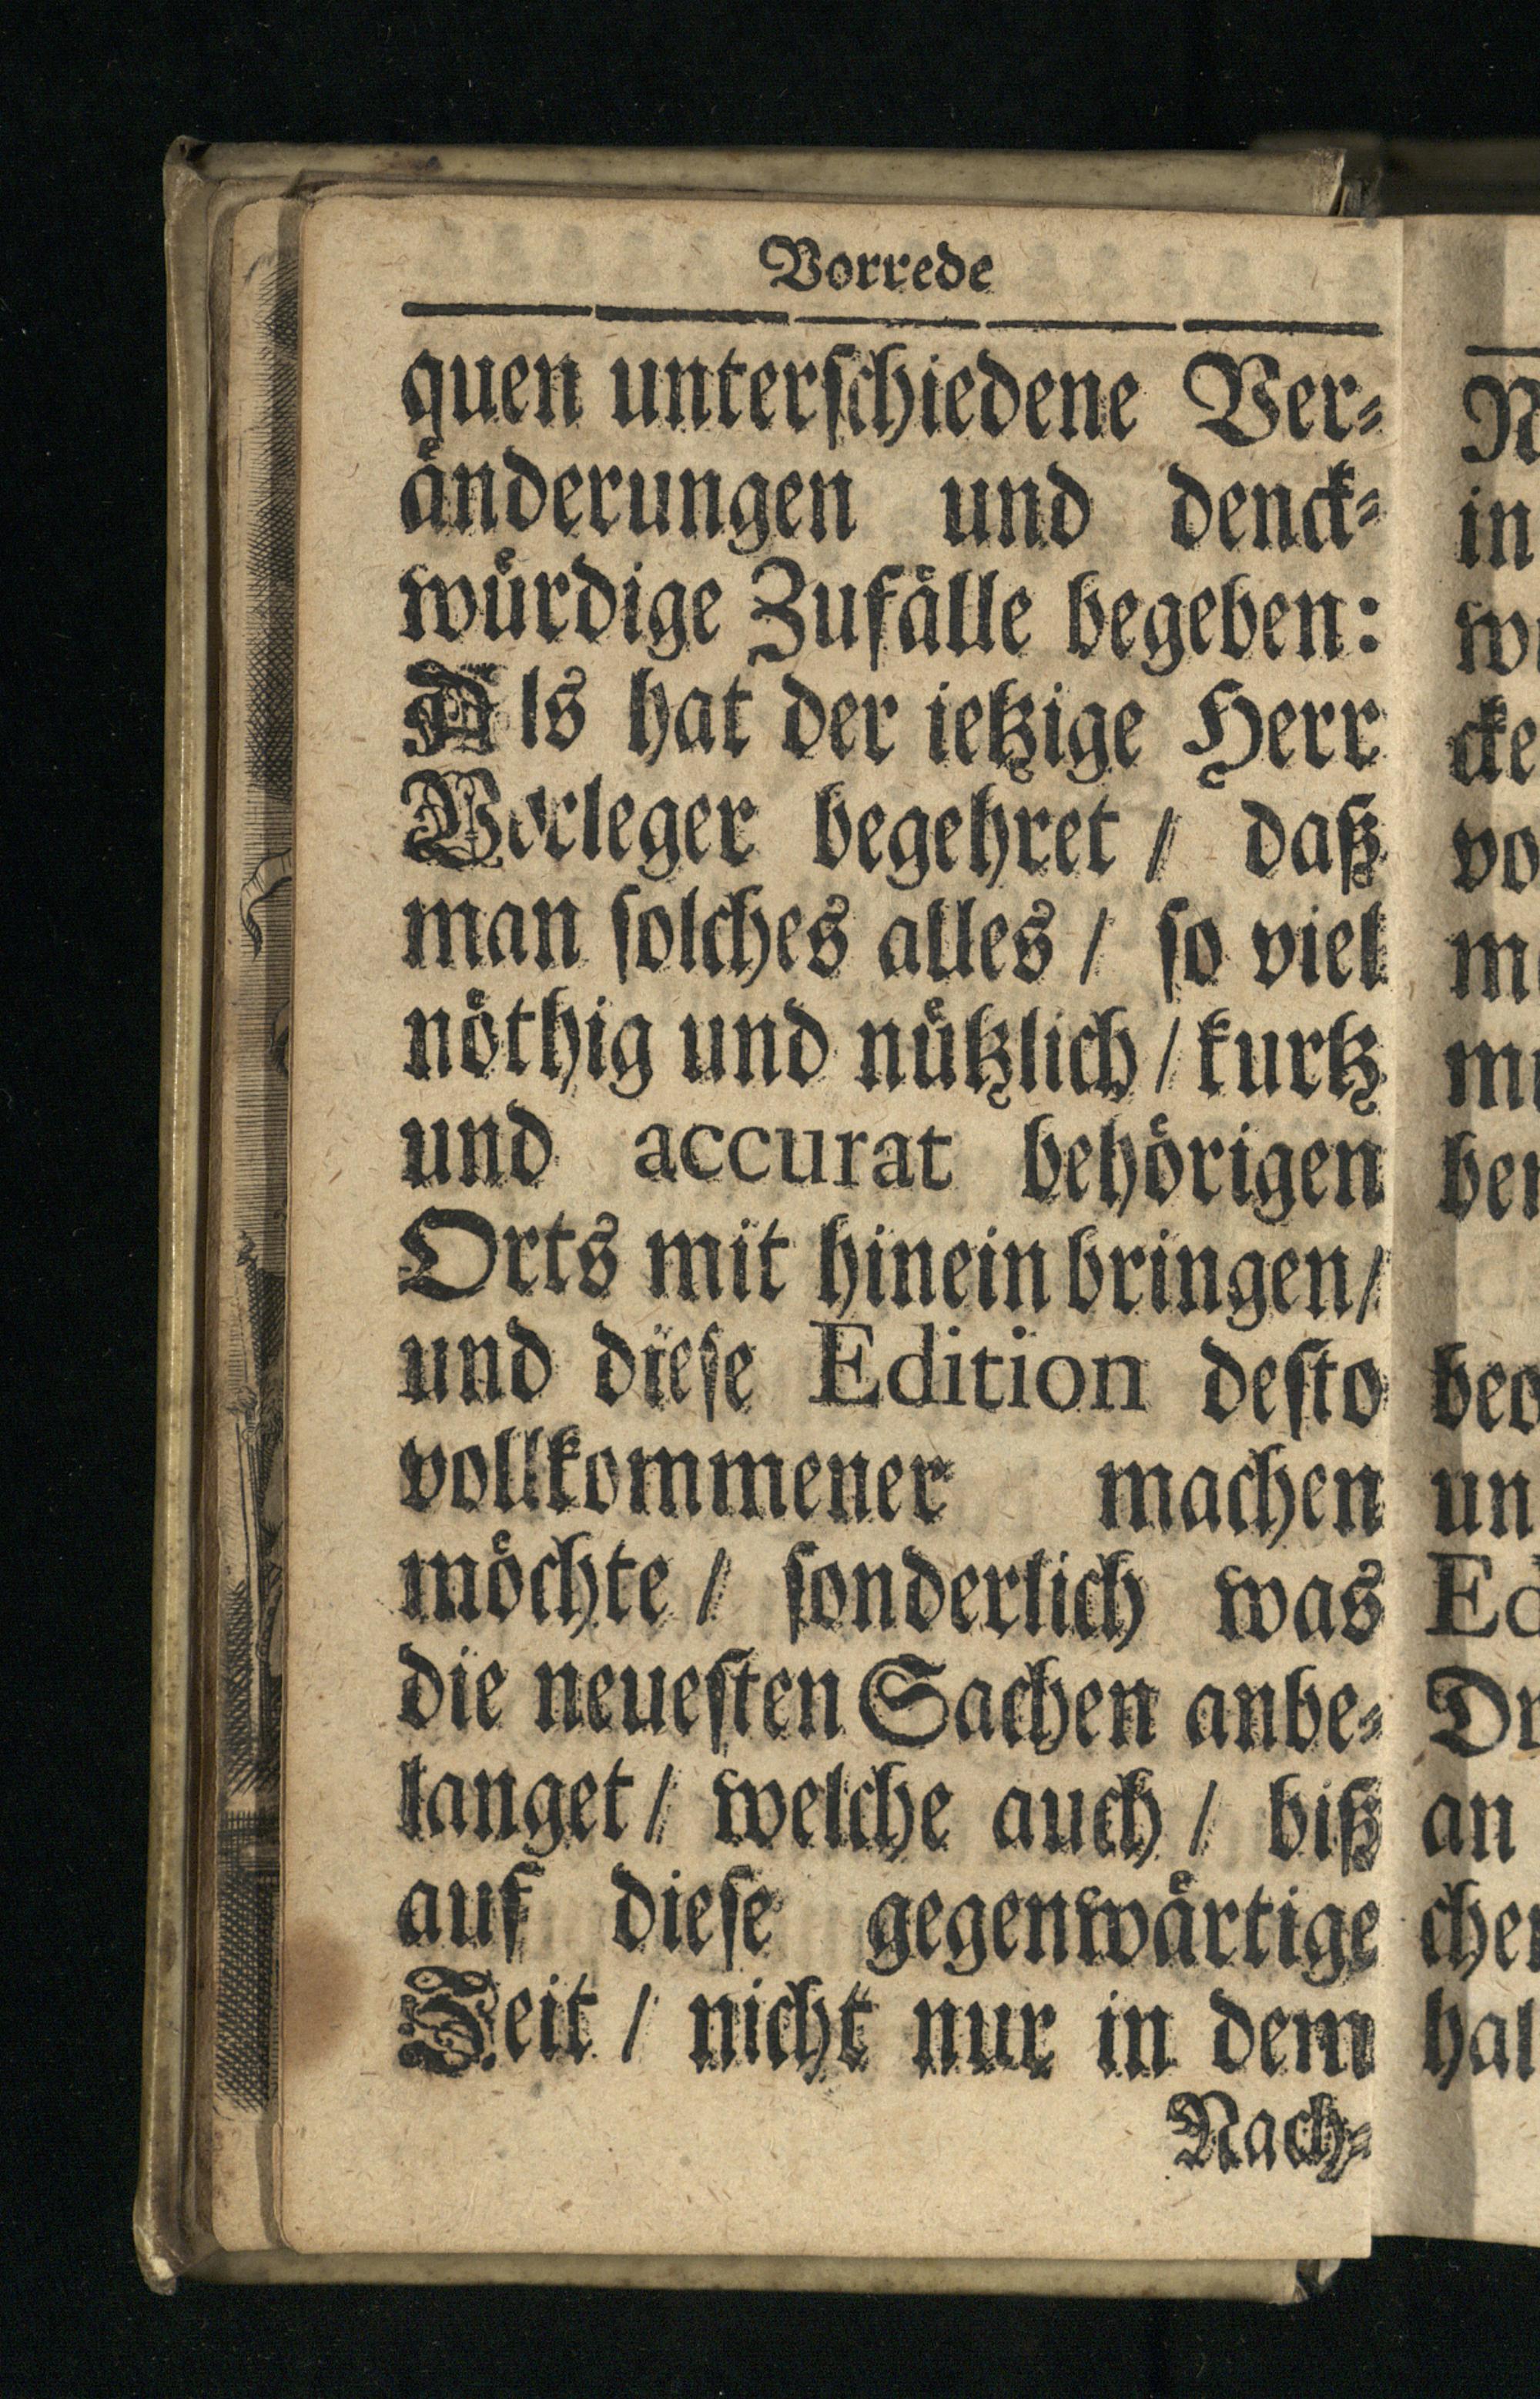 Vorrede
quen unterſchiedene Ver⸗
aͤnderungen und denck⸗
wuͤrdige Zufaͤlle begeben:
Als hat der ietzige Herr
Vorleger begehret / daß
man ſolches alles / ſo viel
noͤthig und nuͤtzlich / kurtz
und accurat behoͤrigen
Orts mit hinein bringen /
und dieſe Edition deſto
vollkommener machen
moͤchte / ſonderlich was
die neueſten Sachen anbe⸗
langet / welche auch / biß
auf dieſe gegenwaͤrtige
Zeit / nicht nur in dem
Nach⸗